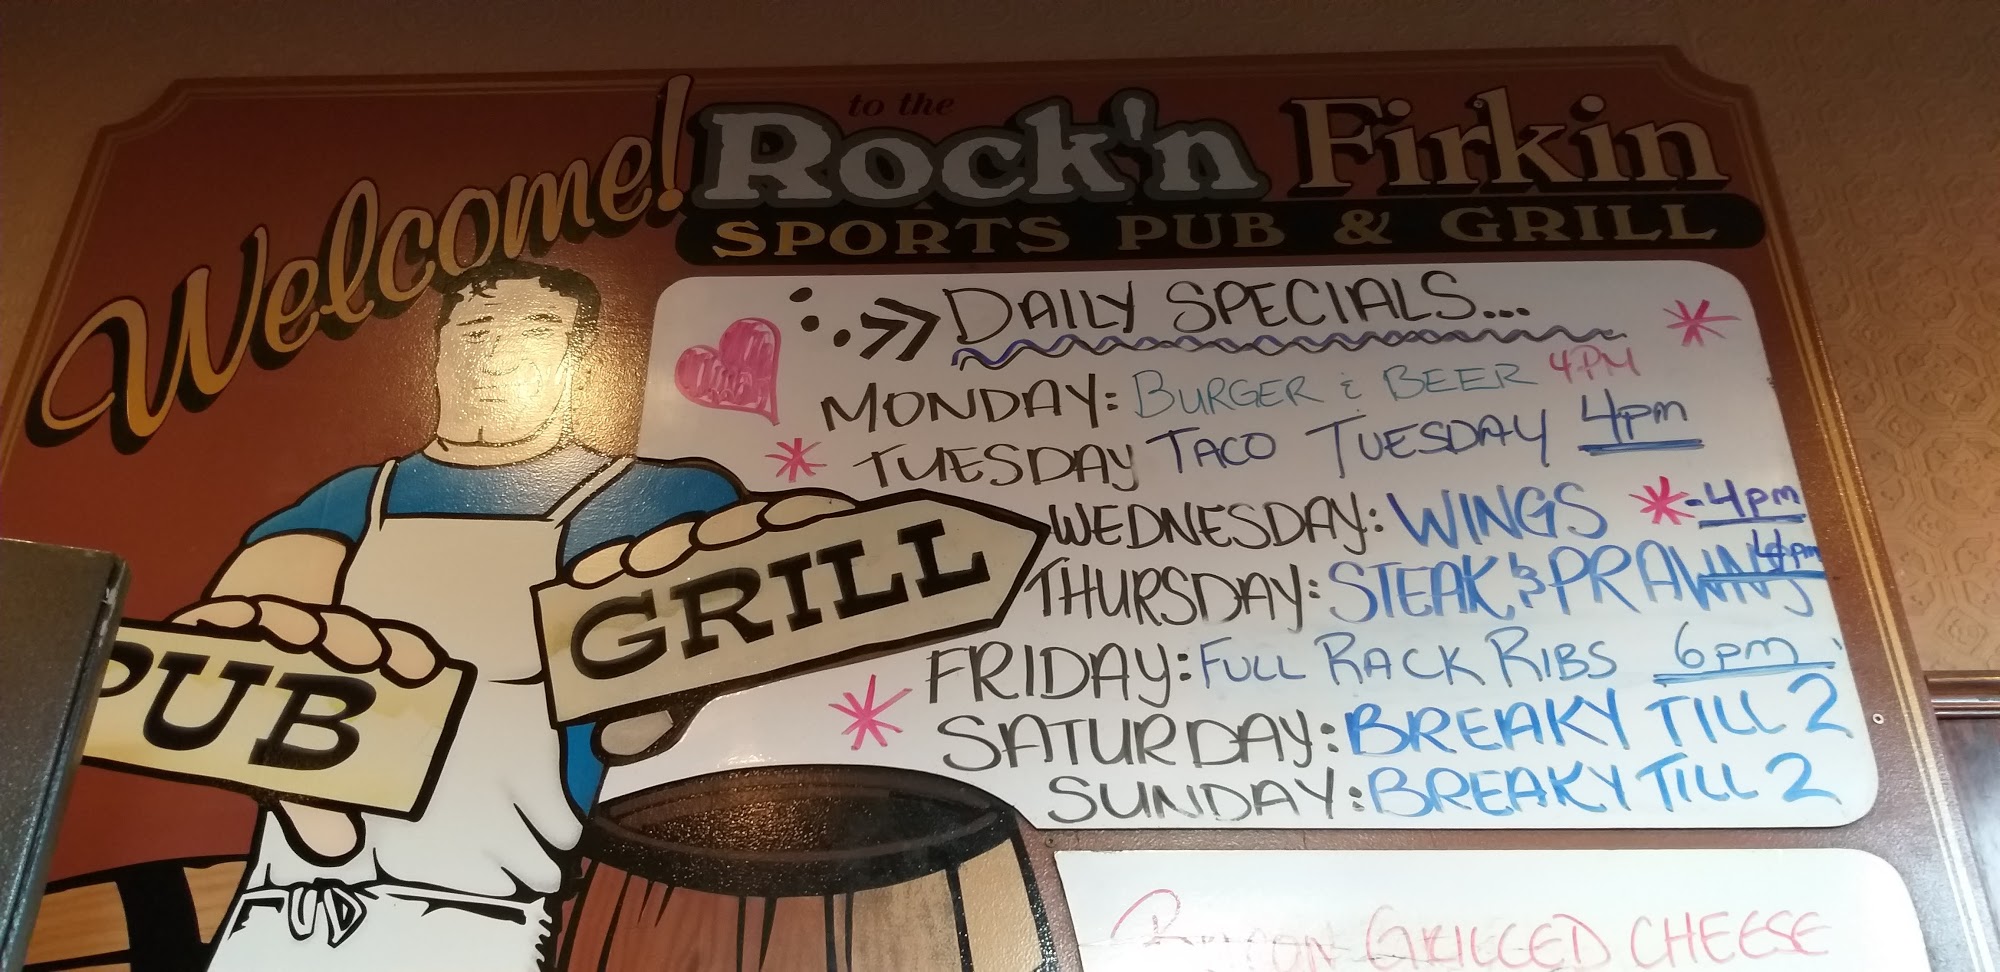 Welcome!
to the
Rock'n Firkin
SPORTS PUB & GRILL
DAILY SPECIALS...
MONDAY: BURGER & BEER 4PM
TUESDAY TACO TUESDAY 4pm
WEDNESDAY: WINGS -4pm
THURSDAY: STEAK & PRAWNS 4pm
FRIDAY: FULL RACK RIBS 6pm
SATURDAY: BREAKY TILL 2
SUNDAY: BREAKY TILL 2
GRILL
PUB
BACON GRILLED CHEESE